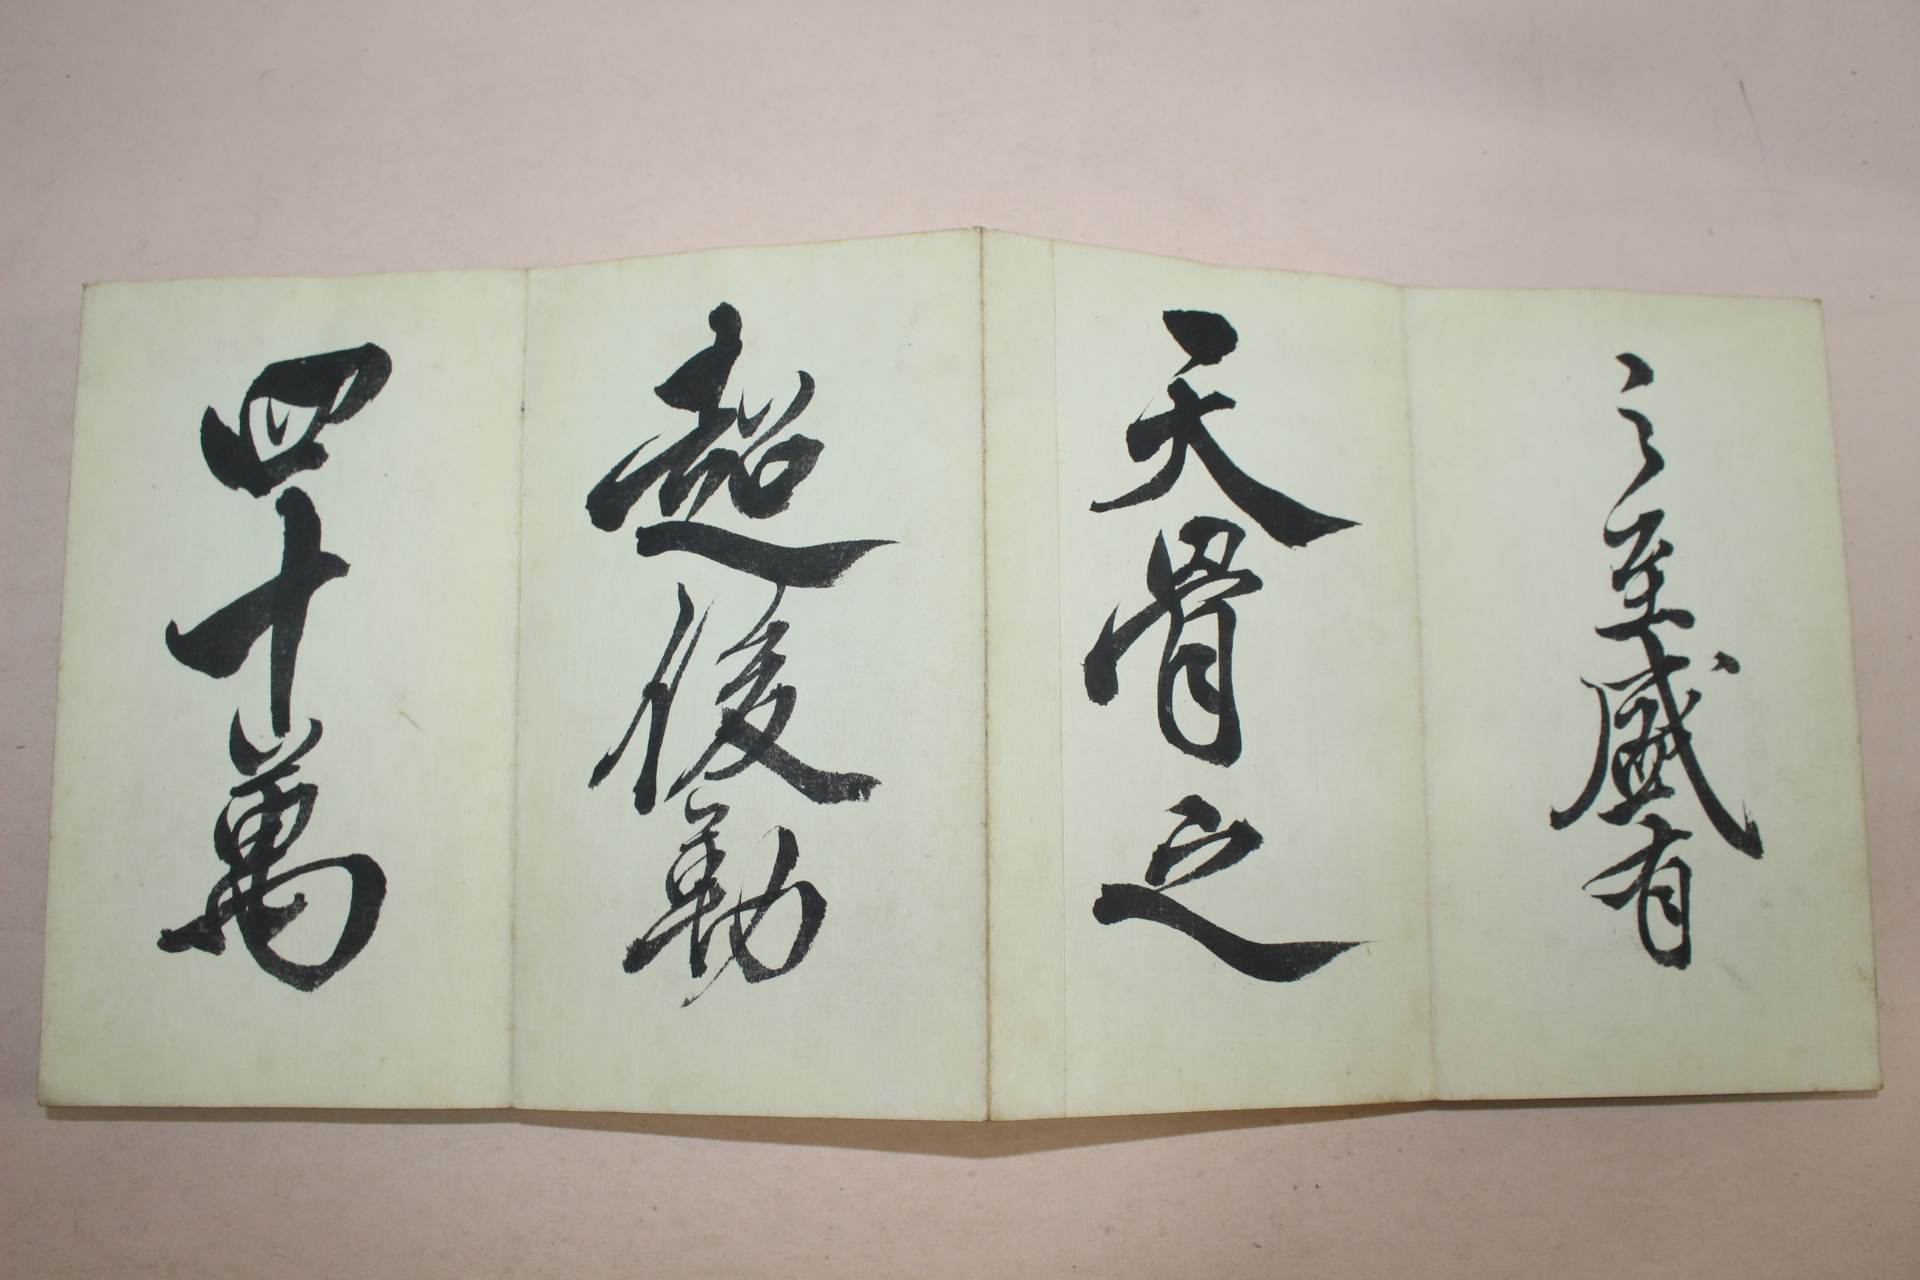 之至盛有
天骨之
超俊勒
四十萬